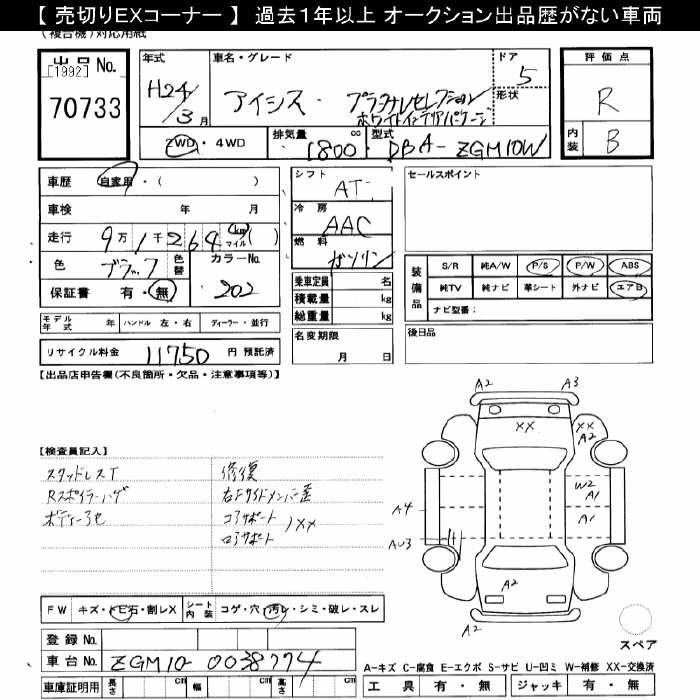 【 売切りEXコーナー 】 過去1年以上 オークション出品歴がない車両
(複合機)対応用紙
出品 No.
[1992]
70733
年式
H24/3月
車名・グレード
アイシス・プラタナセレクション
ホワイトインテリアパッケージ
ドア
5
形状
2WD・4WD
排気量
1800
cc
型式
DBA-ZGM10W
評価点
R
内装
B
車歴 自家用・( )
車検 年 月
走行 9万1千264 km マイル ( )
色 ブラック 色替 カラーNo.
保証書 有・無 202
モデル年式 年 ハンドル 左・右 ディーラー・並行
リサイクル料金 11750 円 預託済
シフト
AT
冷房
AAC
燃料
ガソリン
乗車定員 名
積載量 kg
総重量 kg
名変期限
月 日
セールスポイント
装備品
S/R 純A/W P/S P/W ABS
純TV 純ナビ 革シート 外ナビ エアB
ナビ型番:
後日品
【出品店申告欄(不良箇所・欠品・注意事項等)】
【検査員記入】
スタッドレスT
Rスポイラーハゲ
ボディー色セ
修復
右Fサイドメンバー歪
コアサポート
ロアサポート
XX
A2
A3
XX
XX
A2
W2
A1
A1
A4
AU3
A2
A2
スペア
FW キズ・トビ石・割レX シート内装 コゲ・穴・汚レ・シミ・破レ・スレ
登録 No.
車台 No. ZGM10-0038774
車庫証明用 長さ cm 幅 cm 高さ cm
A-キズ C-腐食 E-エクボ S-サビ U-凹ミ W-補修 XX-交換済
工具 有・無 ジャッキ 有・無